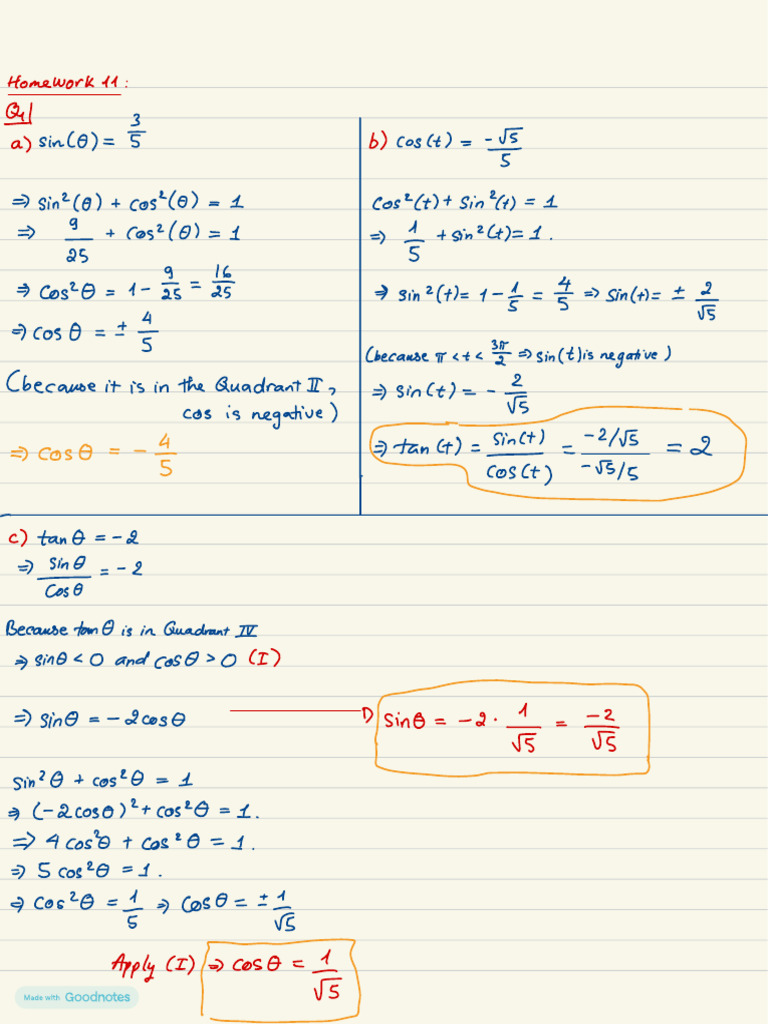 Homework 11:
Q1
a) sin(θ) = 3/5
⇒ sin²(θ) + cos²(θ) = 1
⇒ 9/25 + cos²(θ) = 1
⇒ cos²θ = 1 - 9/25 = 16/25
⇒ cosθ = ± 4/5
(because it is in the Quadrant II,
cos is negative)
⇒ cosθ = - 4/5
b) cos(t) = -√5/5
cos²(t) + sin²(t) = 1
⇒ 1/5 + sin²(t) = 1.
⇒ sin²(t) = 1 - 1/5 = 4/5 ⇒ sin(t) = ± 2/√5
(because π < t < 3π/2 ⇒ sin(t) is negative)
⇒ sin(t) = - 2/√5
⇒ tan(t) = sin(t)/cos(t) = (-2/√5)/(-√5/5) = 2
c) tanθ = -2
⇒ sinθ/cosθ = -2
Because tanθ is in Quadrant IV
⇒ sinθ < 0 and cosθ > 0 (I)
⇒ sinθ = -2cosθ
sinθ = -2 · 1/√5 = -2/√5
sin²θ + cos²θ = 1
⇒ (-2cosθ)² + cos²θ = 1.
⇒ 4cos²θ + cos²θ = 1.
⇒ 5cos²θ = 1.
⇒ cos²θ = 1/5 ⇒ cosθ = ± 1/√5
Apply (I) ⇒ cosθ = 1/√5
Made with Goodnotes